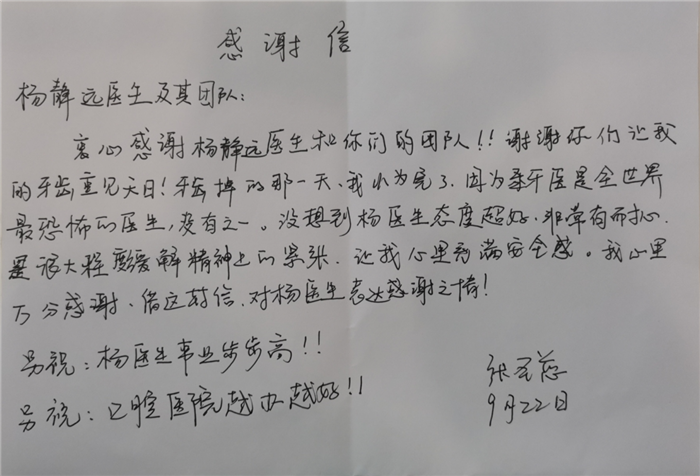 感谢信
杨静远医生及其团队:
衷心感谢杨静远医生和你们的团队!!谢谢你们让我
的牙齿重见天日!牙齿掉的那一天、我以为完了、因为牙医是全世界
最恐怖的医生,没有之一。没想到杨医生态度超好、非常有耐心、
是很大程度缓解精神上的紧张、让我心里充满安全感。我心里
万分感谢、借这封信、对杨医生表达感谢之情!
另祝:杨医生事业步步高!!
另祝:口腔医院越办越好!!
张
9月22日